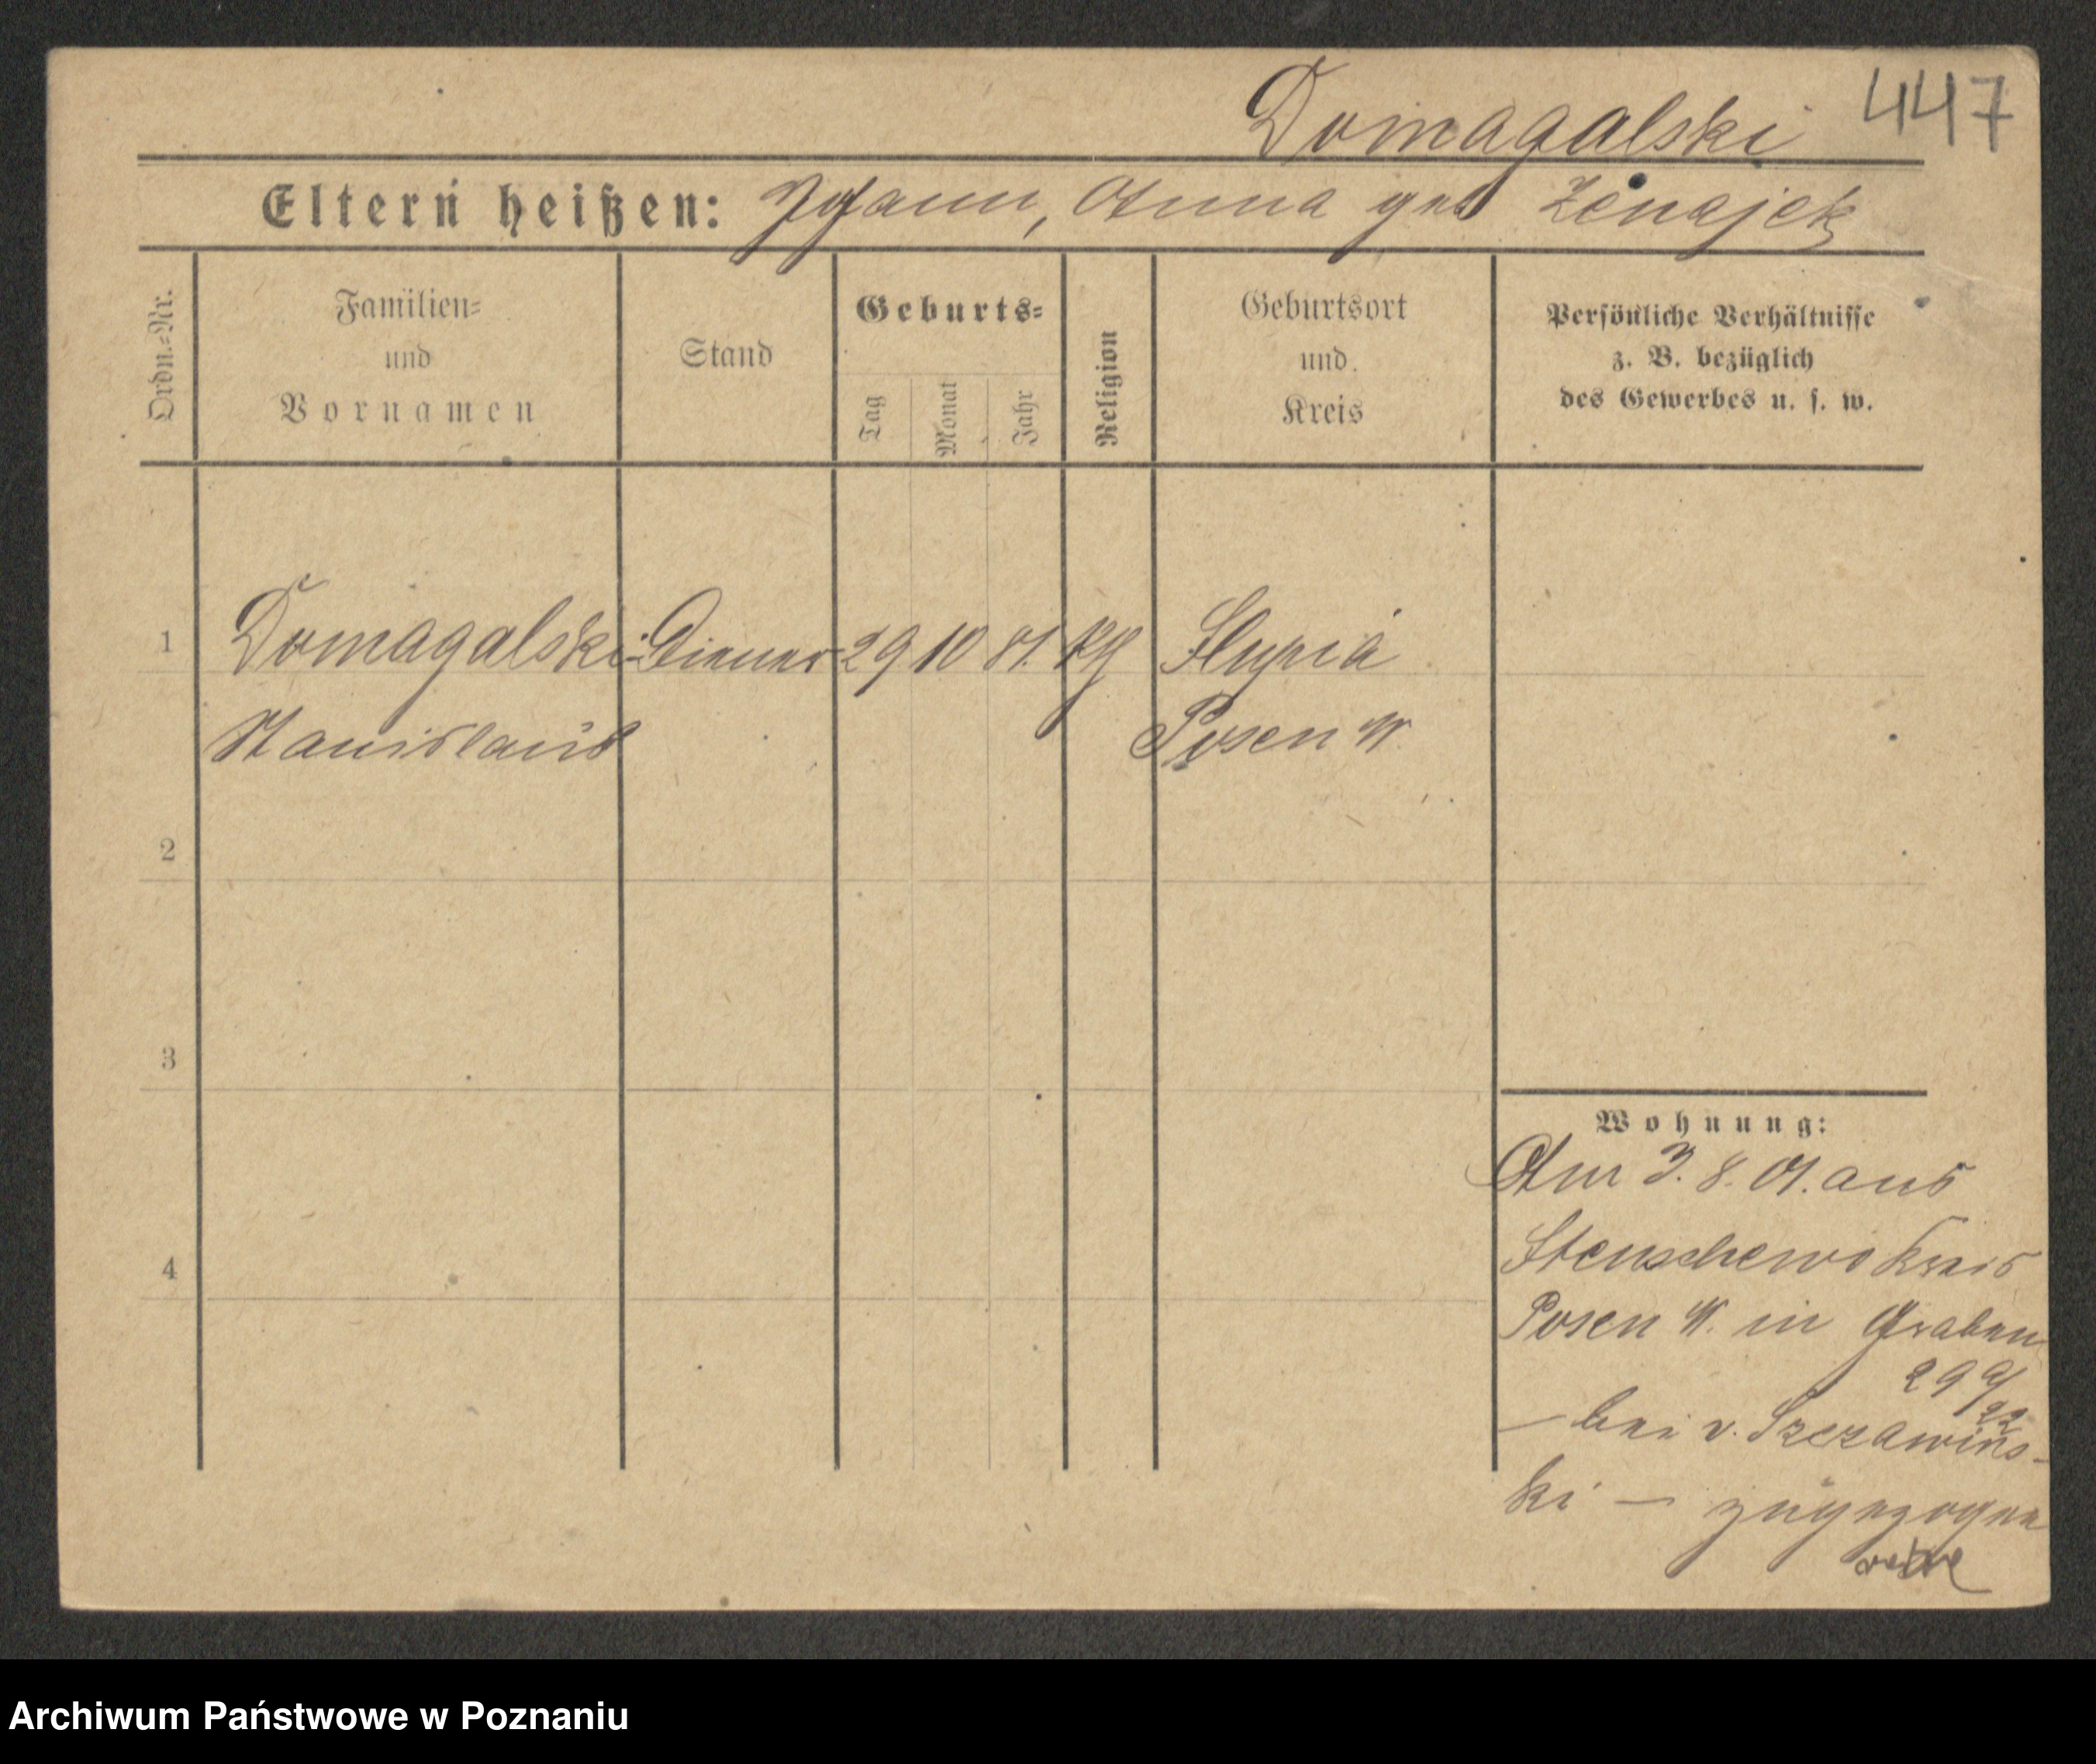 Domagalski 447
Eltern heißen: Johann, Anna geb Zenajek
Ordn.-Nr.
Familien-
und
Vornamen
Stand
Geburts-
Tag
Monat
Jahr
Religion
Geburtsort
und
Kreis
Persönliche Verhältnisse
z. B. bezüglich
des Gewerbes u. s. w.
1 Domagalski Diener 29 10 81. kth Slupia
Stanislaus Posen W.
2
3
4
Wohnung:
Am 3. 8. 01. aus
Stenschewo Kreis
Posen W. in Graben
29a/
22
— bei v. Szczawins-
ki — zugezogen
Archiwum Państwowe w Poznaniu